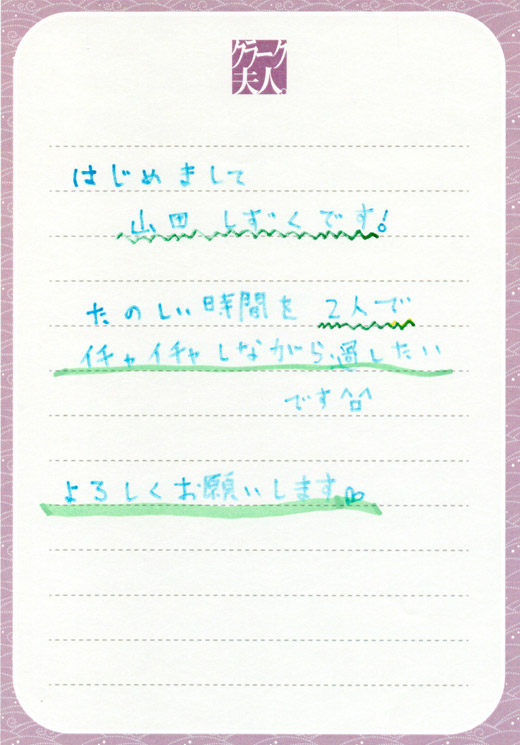 クラーク
夫人。
はじめまして
山田 しずくです!
たのしい時間を 2人で
イチャイチャしながら過したい
です^ロ^
よろしくお願いします